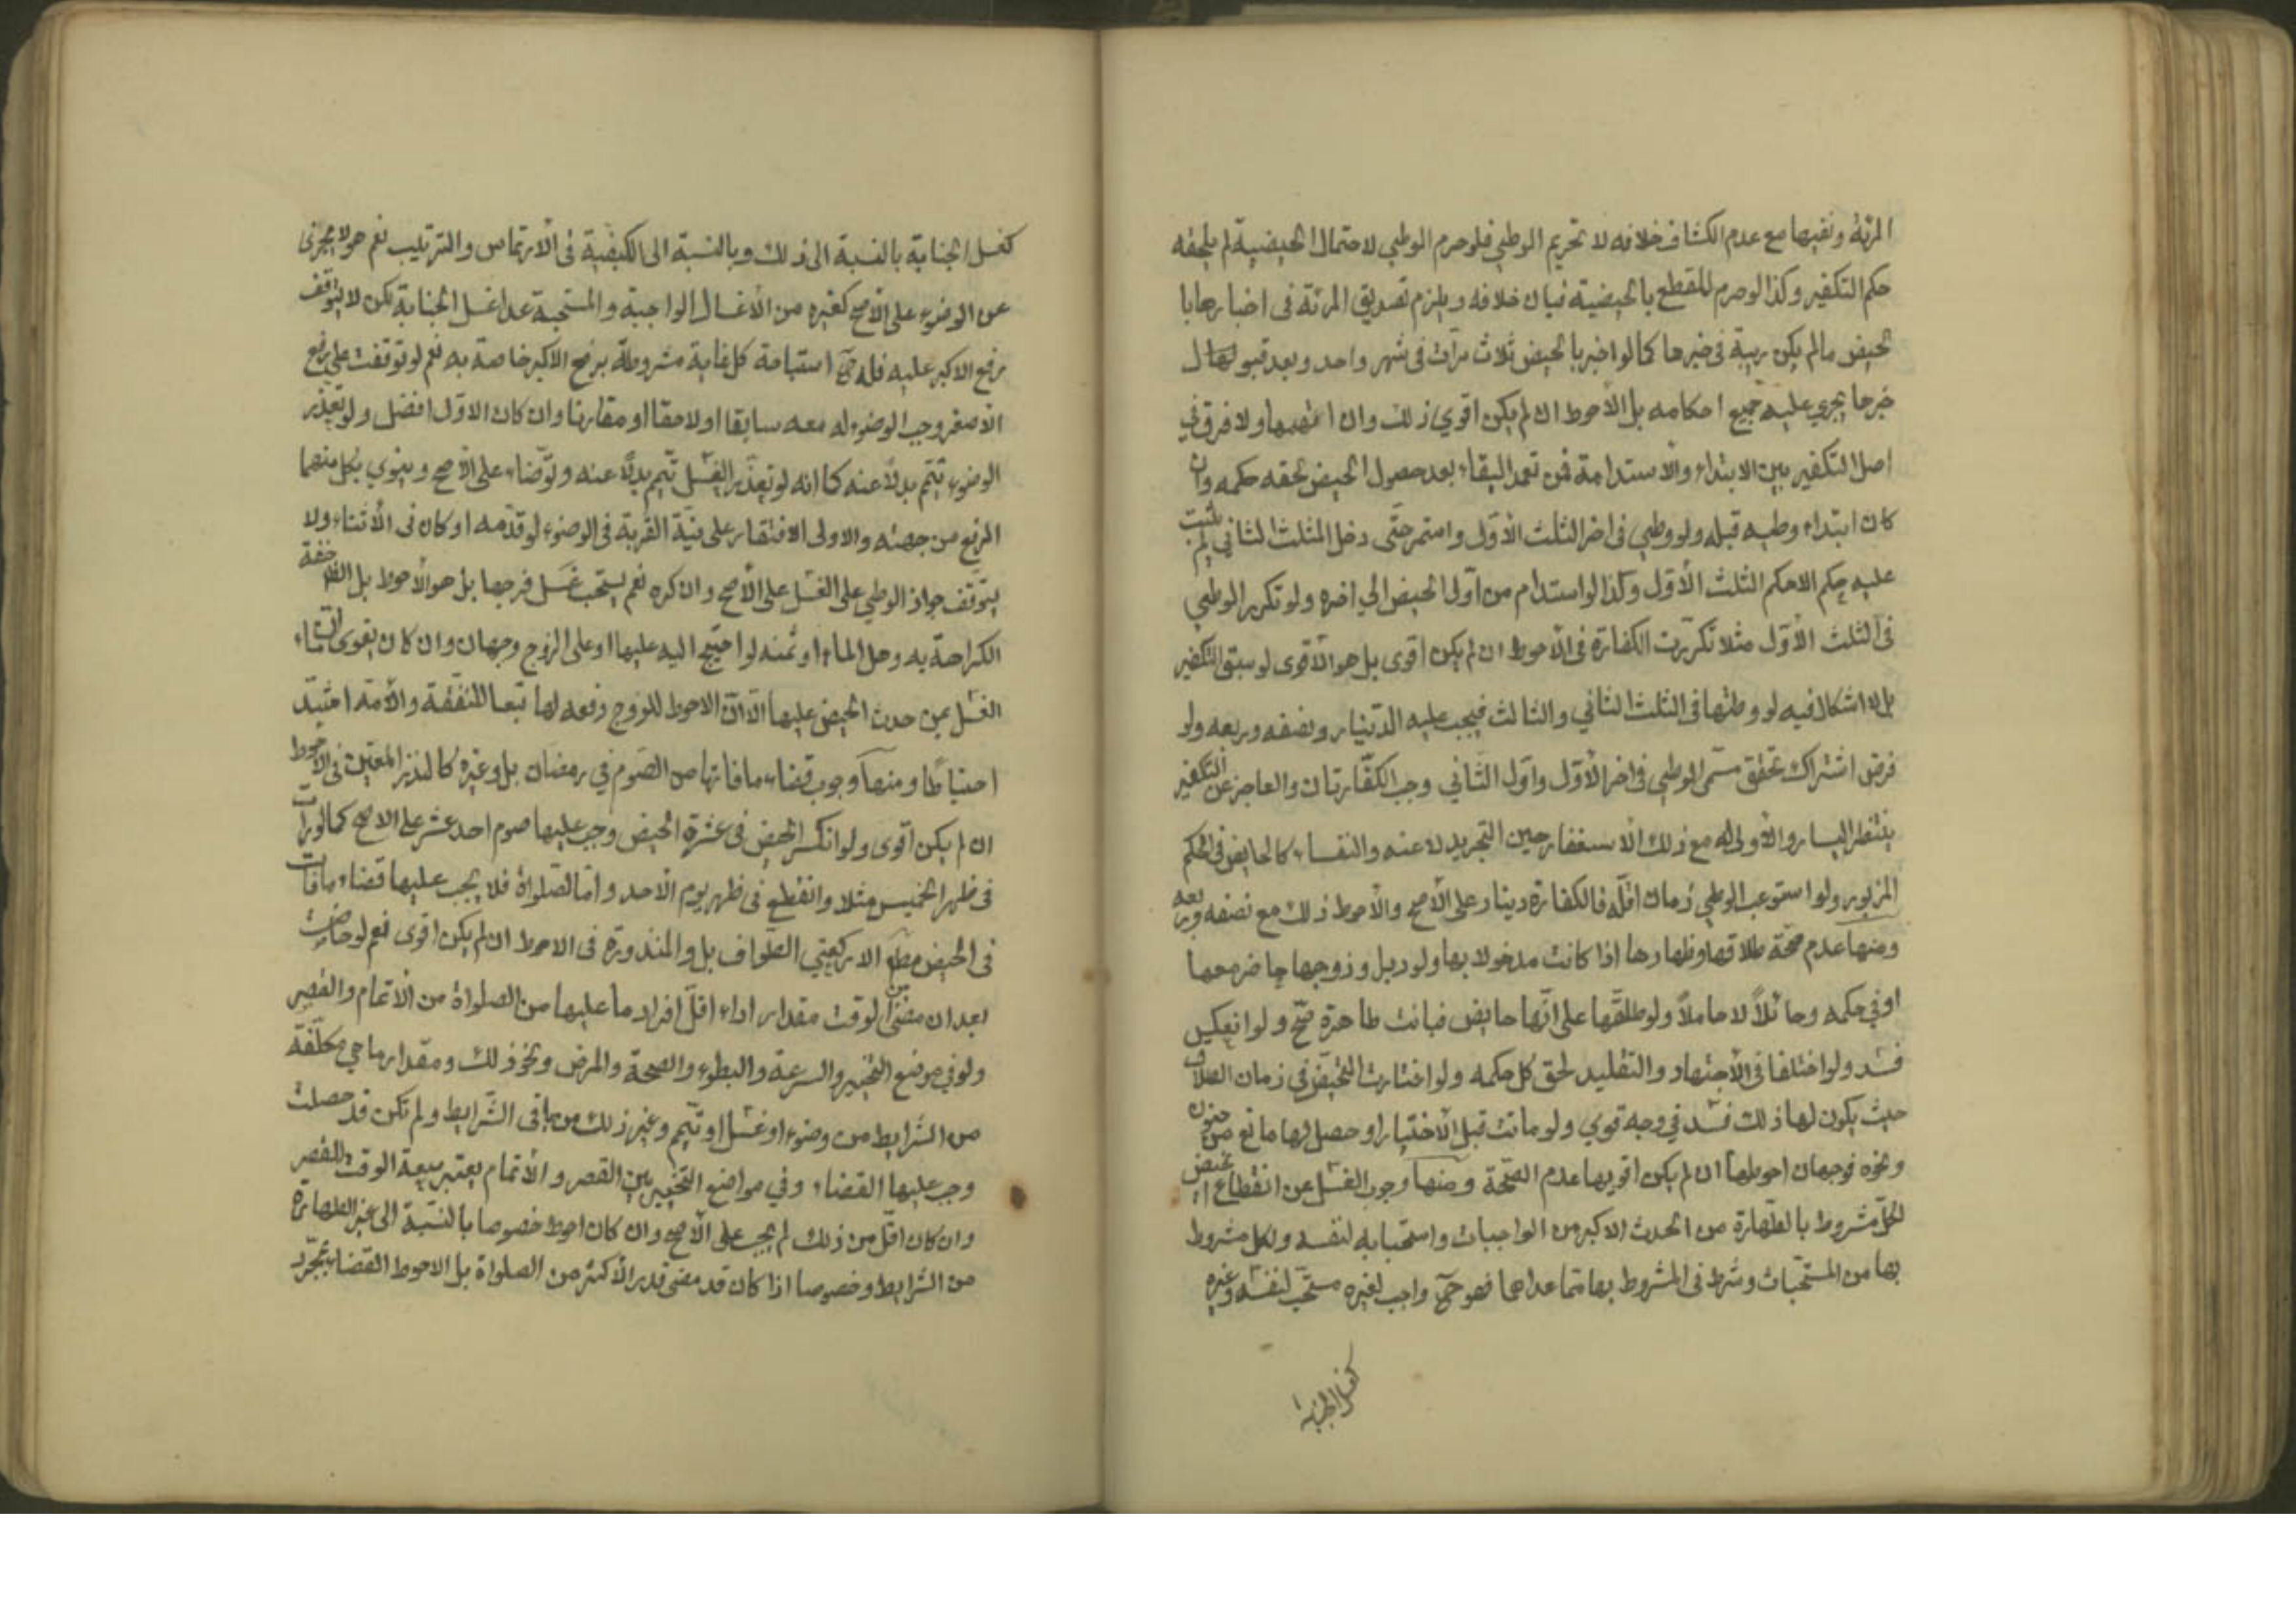 المرئة وغيرها مع عدم انكشاف خلافه لا تحريم الوطي فلو حرم الوطي لاحتمال الحيضية لم يلحقه
حكم التكفير وكذا لو حرم للقطع بالحيضية فبان خلافه ويلزم تصديق المرئة في اخبارها با
لحيض مالم يكن ريبة في خبرها كما لو اخبر بالحيض ثلاث مرات في شهر واحد وبعد قبول
خبرها يجري عليه جميع احكامه بل الأحوط ان لم يكن اقوي ذلك وان اتهمها ولا فرق في
اصل التكفير بين الابتداء والاستدامة فمن تعمد البقاء بعد حصول الحيض لحقه حكمه وان
كان ابتداء وطيه قبله ولو وطي في اخر الثلث الأوّل واستمر حتّى دخل الثلث الثاني لم يثبت
عليه حكم الا حكم الثلث الأوّل وكذا لو استدام من اوّل الحيض الي اخره ولو تكرر الوطي
في الثلث الأوّل مثلا تكرّرت الكفارة في الأحوط ان لم يكن اقوى بل هو الأقوى لو سبق التكفير
بل لا اشكال فيه لو وطئها في الثلث الثاني والثالث فيجب عليه الدّينار ونصفه وربعه ولو
فرض اشتراك تحقق مسمّى الوطي في اخر الأوّل واوّل الثّاني وجب الكفّارتان والعاجز عن التكفير
ينتظر اليسار والأولى له مع ذلك الاسغفار حين التجريد لا عنه والنفساء كالحايض في الحكم
المزبور ولو استوعب الوطي زمان اقلّه فالكفارة دينار على الأصح والأحوط ذلك مع نصفه وربعه
ومنها عدم صحّة طلاقها وظهارها اذا كانت مدخولا بها ولو دبرا وزوجها حاضر معها
او في حكمه وحائلاً لا حاملاً ولو طلقّها على انّها حايض فبانت طاهرة صحّ ولو انعكس
فسد ولو اختلفا في الأجتهاد والتقليد لحق كل حكمه ولو اختارت التحيّض في زمان الطلاق
حيث يكون لها ذلك فسد في وجه قوي ولو ماتت قبل الأختيار او حصل لها مانع من جنون
ونحوه فوجهان احوطهما ان لم يكن اقويهما عدم الصّحّة ومنها وجوب الغسل عن انقطاع الحيض
لكلّ مشروط بالطّهارة من الحدث الاكبر من الواجبات واستحبابه لنفسه ولكل مشروط
بها من المستحّبات وشرط في المشروط بها ممّا عداها فهو حينئذ واجب لغيره مستحّب لنفسه وغيره
كغسل الجنابة
كغسل الجنابة بالنسبة الى ذلك وبالنسبة الى الكيفية في الأرتماس والترتيب نعم هو لا يجزي
عن الوضوء على الأصح كغيره من الأغسال الواجبة والمستحبة عدا غسل الجنابة لكن لا يتوقف
رفع الاكبر عليه فله ح استباحة كل غاية مشروطة برفع الاكبر خاصة به نعم لو توقفت على رفع
الأصغر وجب الوضوء له معه سابقا او لاحقا او مقارنا وان كان الاوّل افضل ولو تعذّر
الوضوء تيّمم بدلاً عنه كما انه لو تعذّر الغسل تيّمم بدلاً عنه وتوّضاء على الأصح وينوي بكل منهما
الرفع من جهته والاولى الاقتصار على نيّة القربة في الوضوء لو قدّمه او كان في الأثناء ولا
يتوقف جواز الوطي على الغسل على الأصح وان كره نعم يستحب غسل فرجها بل هو الأحوط بل الظ خفة
الكراهة به وهل الماء او ثمنه لو احتيج اليه عليها او على الزوج وجهان وان كان يقوى ان ماء
الغسل من حدث الحيض عليها الّا انّ الاحوط للزوج دفعه لها تبعا للنفقة والأمة
احتياطا ومنها وجوب قضاء ما فاتها من الصّوم في رمضان بل وغيره كالنذر المعيّن في الأحوط
ان لم يكن أقوى ولو انكسر الحيض في عشرة الحيض وجب عليها صوم احد عشر على الاصح كما لو رأت
في ظهر الخميس مثلا وانقطع في ظهر يوم الأحد وامّا الصّلواة فلا يجب عليها قضاء ما فات
في الحيض مطلقا الا ركعتي الطّواف بل والمنذورة في الاحوط ان لم يكن اقوى نعم لو حاضت
بعد ان مضى من الوقت مقدار اداء اقلّ افراد ما عليها من الصلواة من الأتمام والقصر
ولو في موضع التخيير والسرعة والبطوء والصحة والمرض ونحو ذلك ومقدار ما هي مكلّفة
من الشرايط من وضوء او غسل او تيّمم وغير ذلك من باقي الشّرايط ولم تكن قد حصلت
وجب عليها القضاء وفي مواضع التخيير بين القصر والأتمام يعتبر سعة الوقت للقصر
وان كان اقلّ من ذلك لم يجب على الأصح وان كان احوط خصوصا بالنسّبة الى غير الطهارة
من الشرايط وخصوصا اذا كان قد مضى قدر الأكثر من الصلواة بل الاحوط القضاء بمجّرد